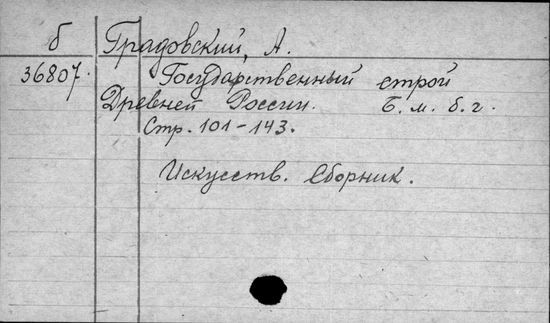 б Градовский, А.
36807. Государственный строй
Древней России. Б.м. б.г.
Стр. 101-143.
Искусств. Сборник.